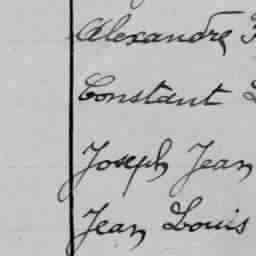 Alexandre
Constant
Joseph Jean
Jean Louis